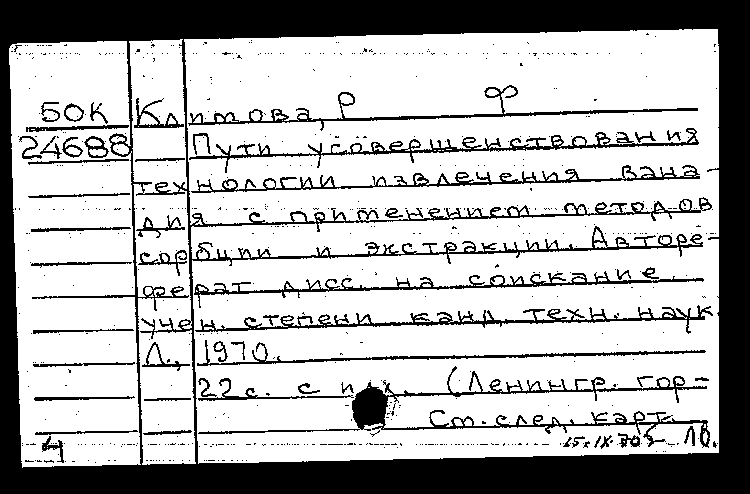 БОК Климова, Р Ф
24688 Пути усовершенствования
технологии извлечения вана-
дия с применением методов
сорбции и экстракции. Авторе-
ферат дисс. на соискание
учен. степени канд. техн. наук.
Л., 1970.
22 с. с илл. (Ленингр. гор-
См. след. карт.
4